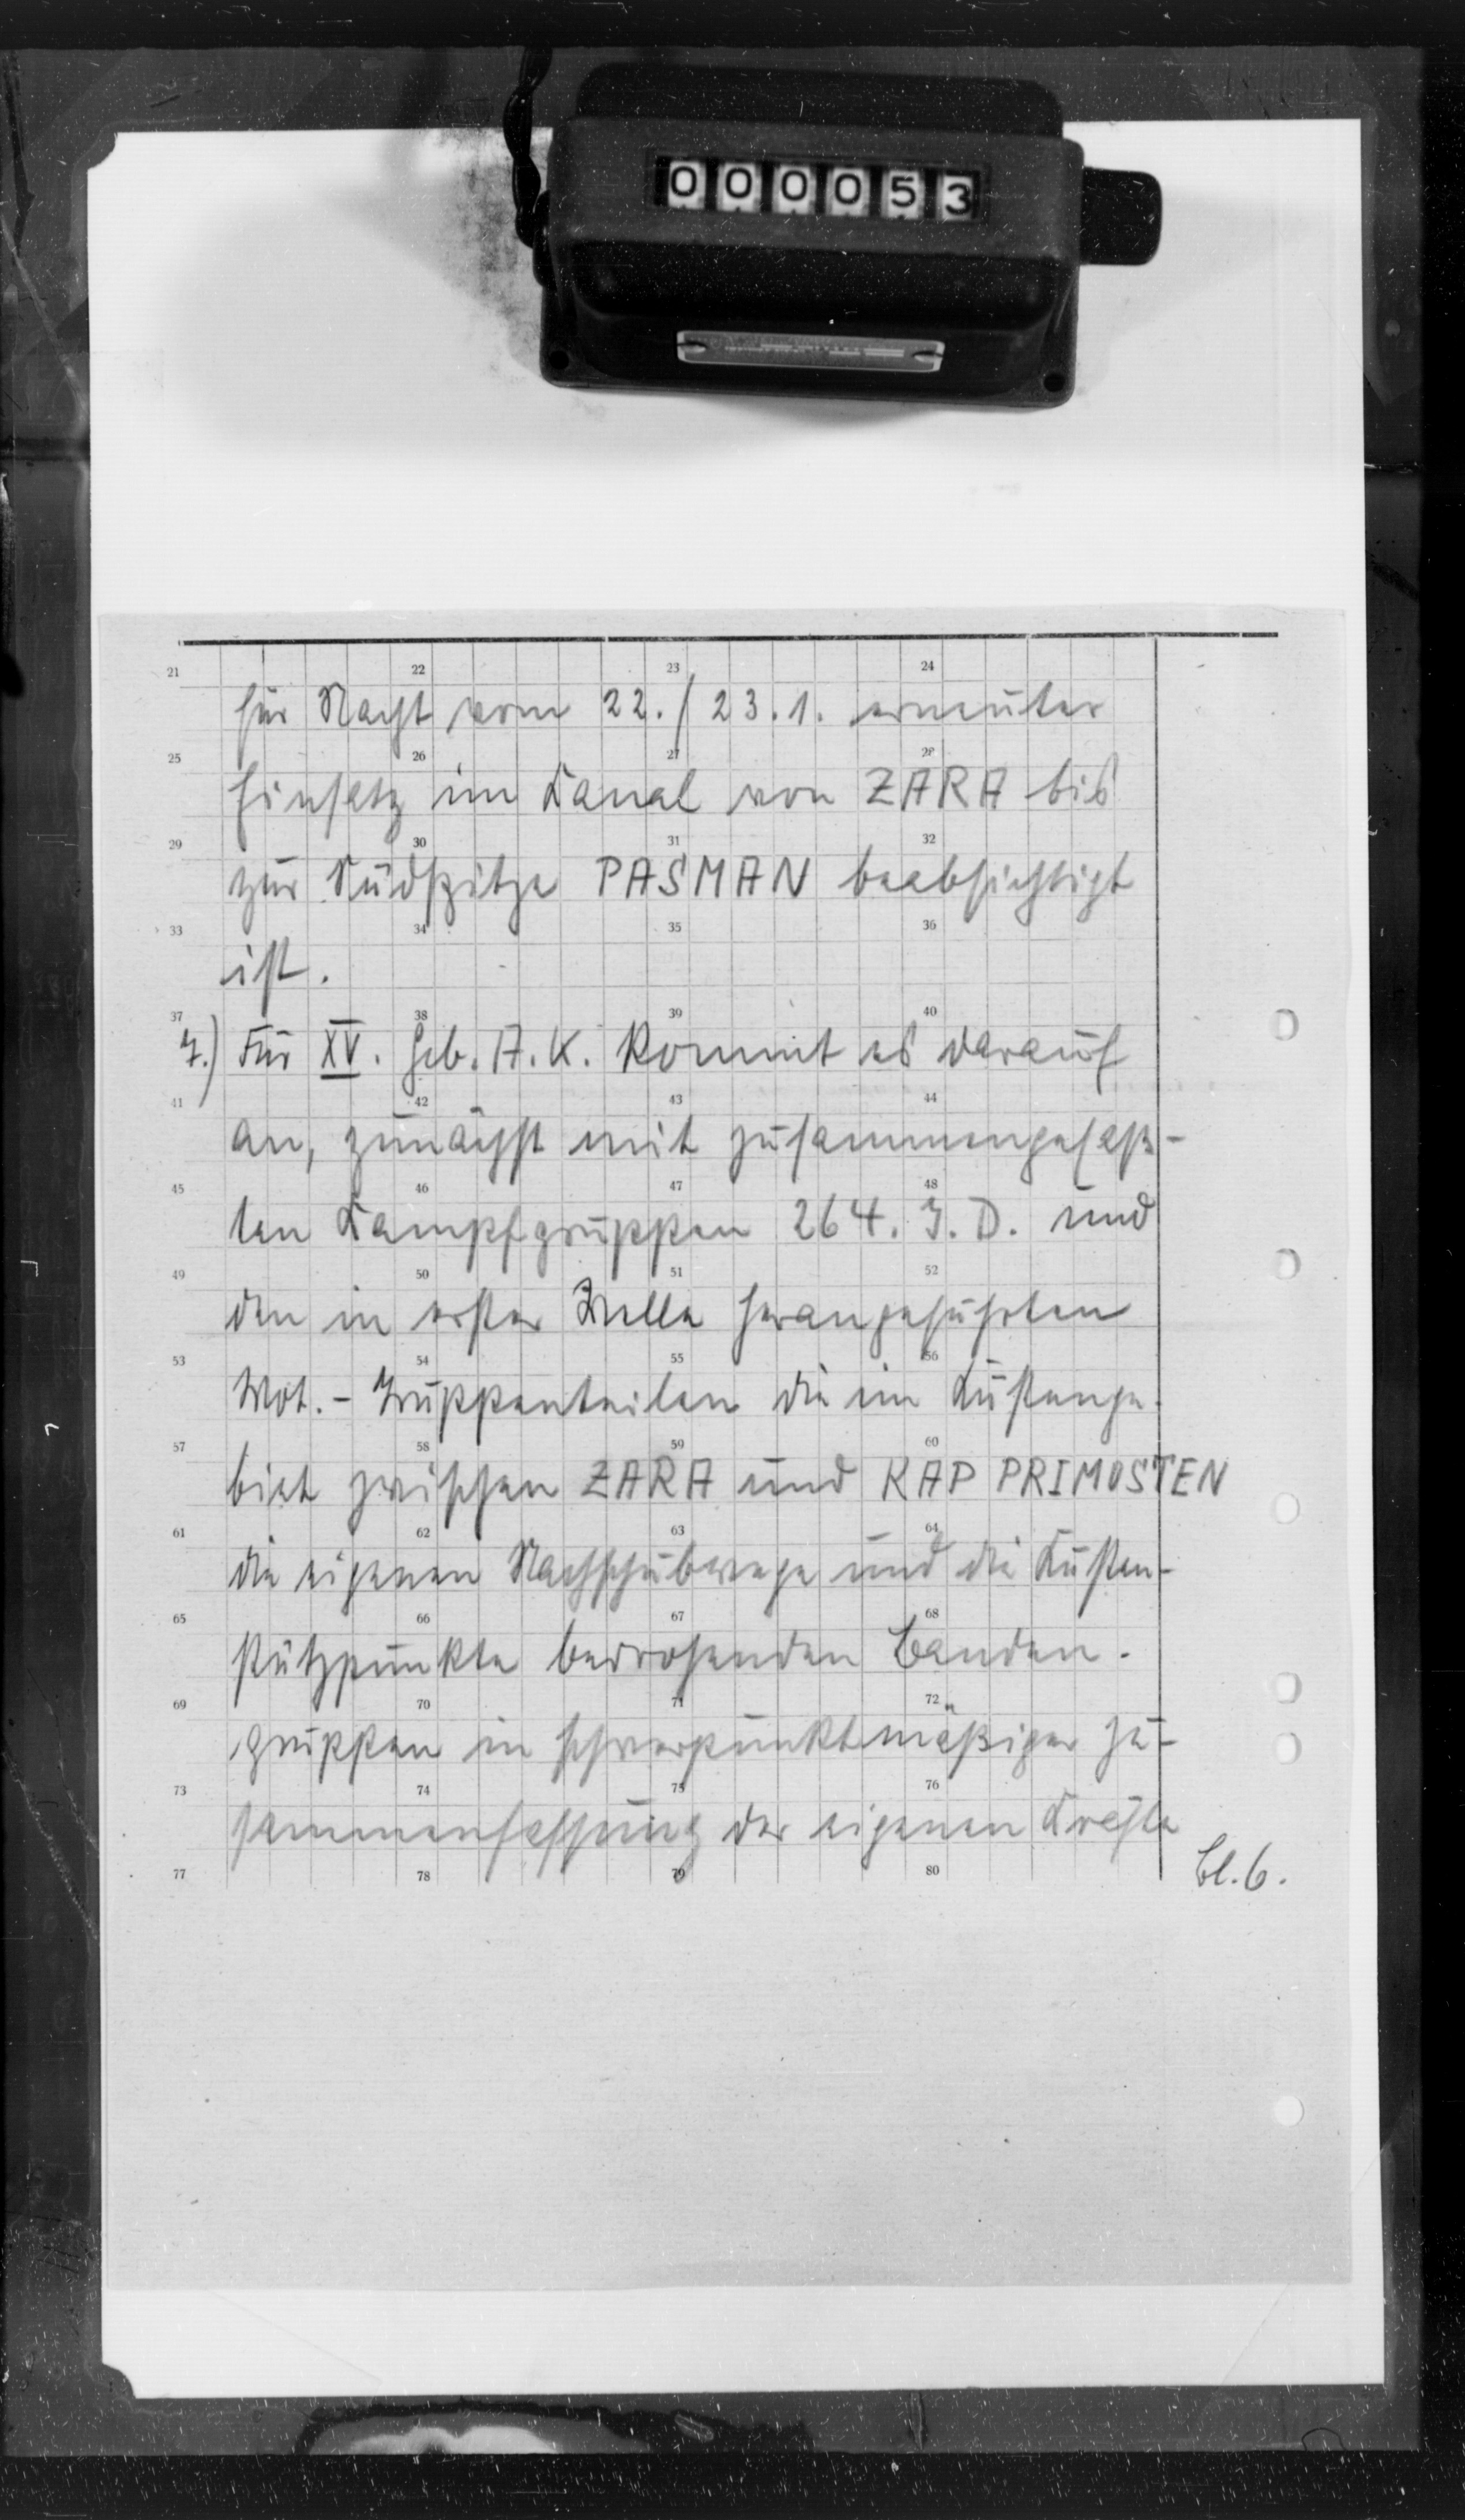 000053
21 22 23 24
für Nacht vom 22./23.1. erneuter
25 26 27 28
Einsatz im Kanal von ZARA bis
29 30 31 32
zur Südspitze PASMAN beabsichtigt
33 34 35 36
ist.
37 38 39 40
7.) Für XV. Geb. A.K. kommt es darauf
41 42 43 44
an, zunächst mit zusammengefaß-
45 46 47 48
ten Kampfgruppen 264. I.D. und
49 50 51 52
den in erster Welle herangeführten
53 54 55 56
Mot.-Truppenteilen die im Küstenge-
57 58 59 60
biet zwischen ZARA und KAP PRIMOSTEN
61 62 63 64
die eigenen Nachschubwege und die Küsten-
65 66 67 68
stützpunkte bedrohenden Banden-
69 70 71 72
gruppen in schwerpunktmäßiger Zu-
73 74 75 76
sammenfassung der eigenen Kräfte
77 78 79 80
Bl. 6.